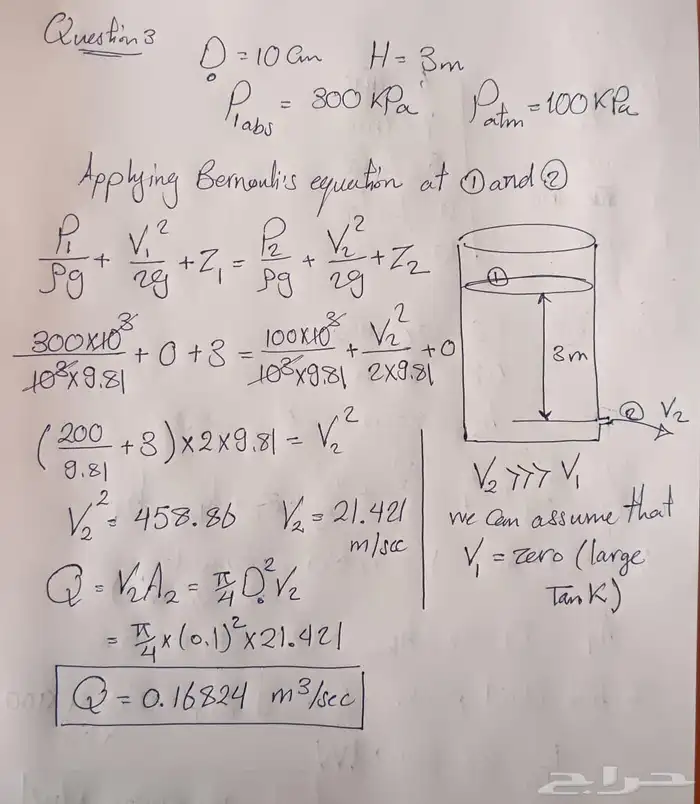 Question 3
D₀ = 10 Cm H = 3m
P₁abs = 300 KPa Patm = 100 KPa
Applying Bernouli's equation at ① and ②
P₁/ρg + V₁²/2g + Z₁ = P₂/ρg + V₂²/2g + Z₂
300×10³/10³×9.81 + 0 + 3 = 100×10³/10³×9.81 + V₂²/2×9.81 + 0
(200/9.81 + 3) × 2 × 9.81 = V₂²
V₂² = 458.86 V₂ = 21.421 m/sec
Q = V₂A₂ = π/4 D₀² V₂
= π/4 × (0.1)² × 21.421
Q = 0.16824 m³/sec
①
3m
② V₂
V₂ >>> V₁
we can assume that
V₁ = zero (large
Tank)
حراج